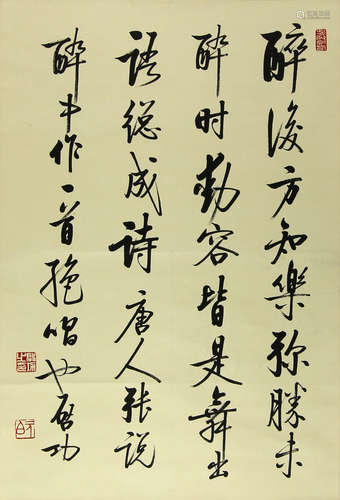 醉後方知樂弥勝未
醉时動容皆是舞出
语總成詩唐人張说
醉中作一首绝唱也啓功